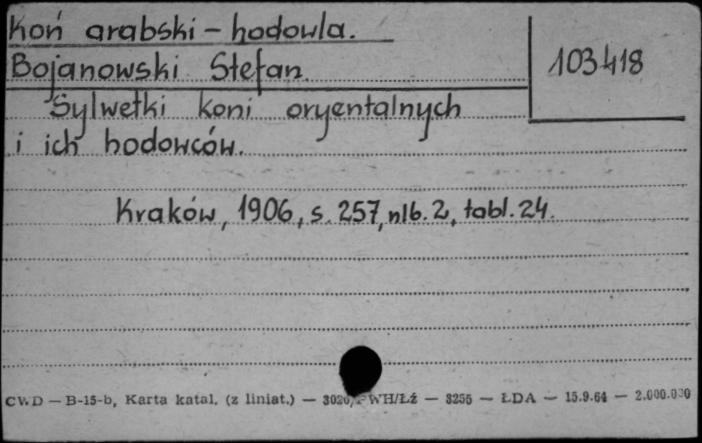 Koń arabski - hodowla.
Bojanowski Stefan
103418
Sylwetki koni oryentalnych
i ich hodowców.
Kraków, 1906, s. 257, nlb. 2, tabl. 24.
CWD — B-15-b, Karta katal. (z liniat.) — WH/Łź — 3255 — ŁDA — 15.9.64 — 2.000.000